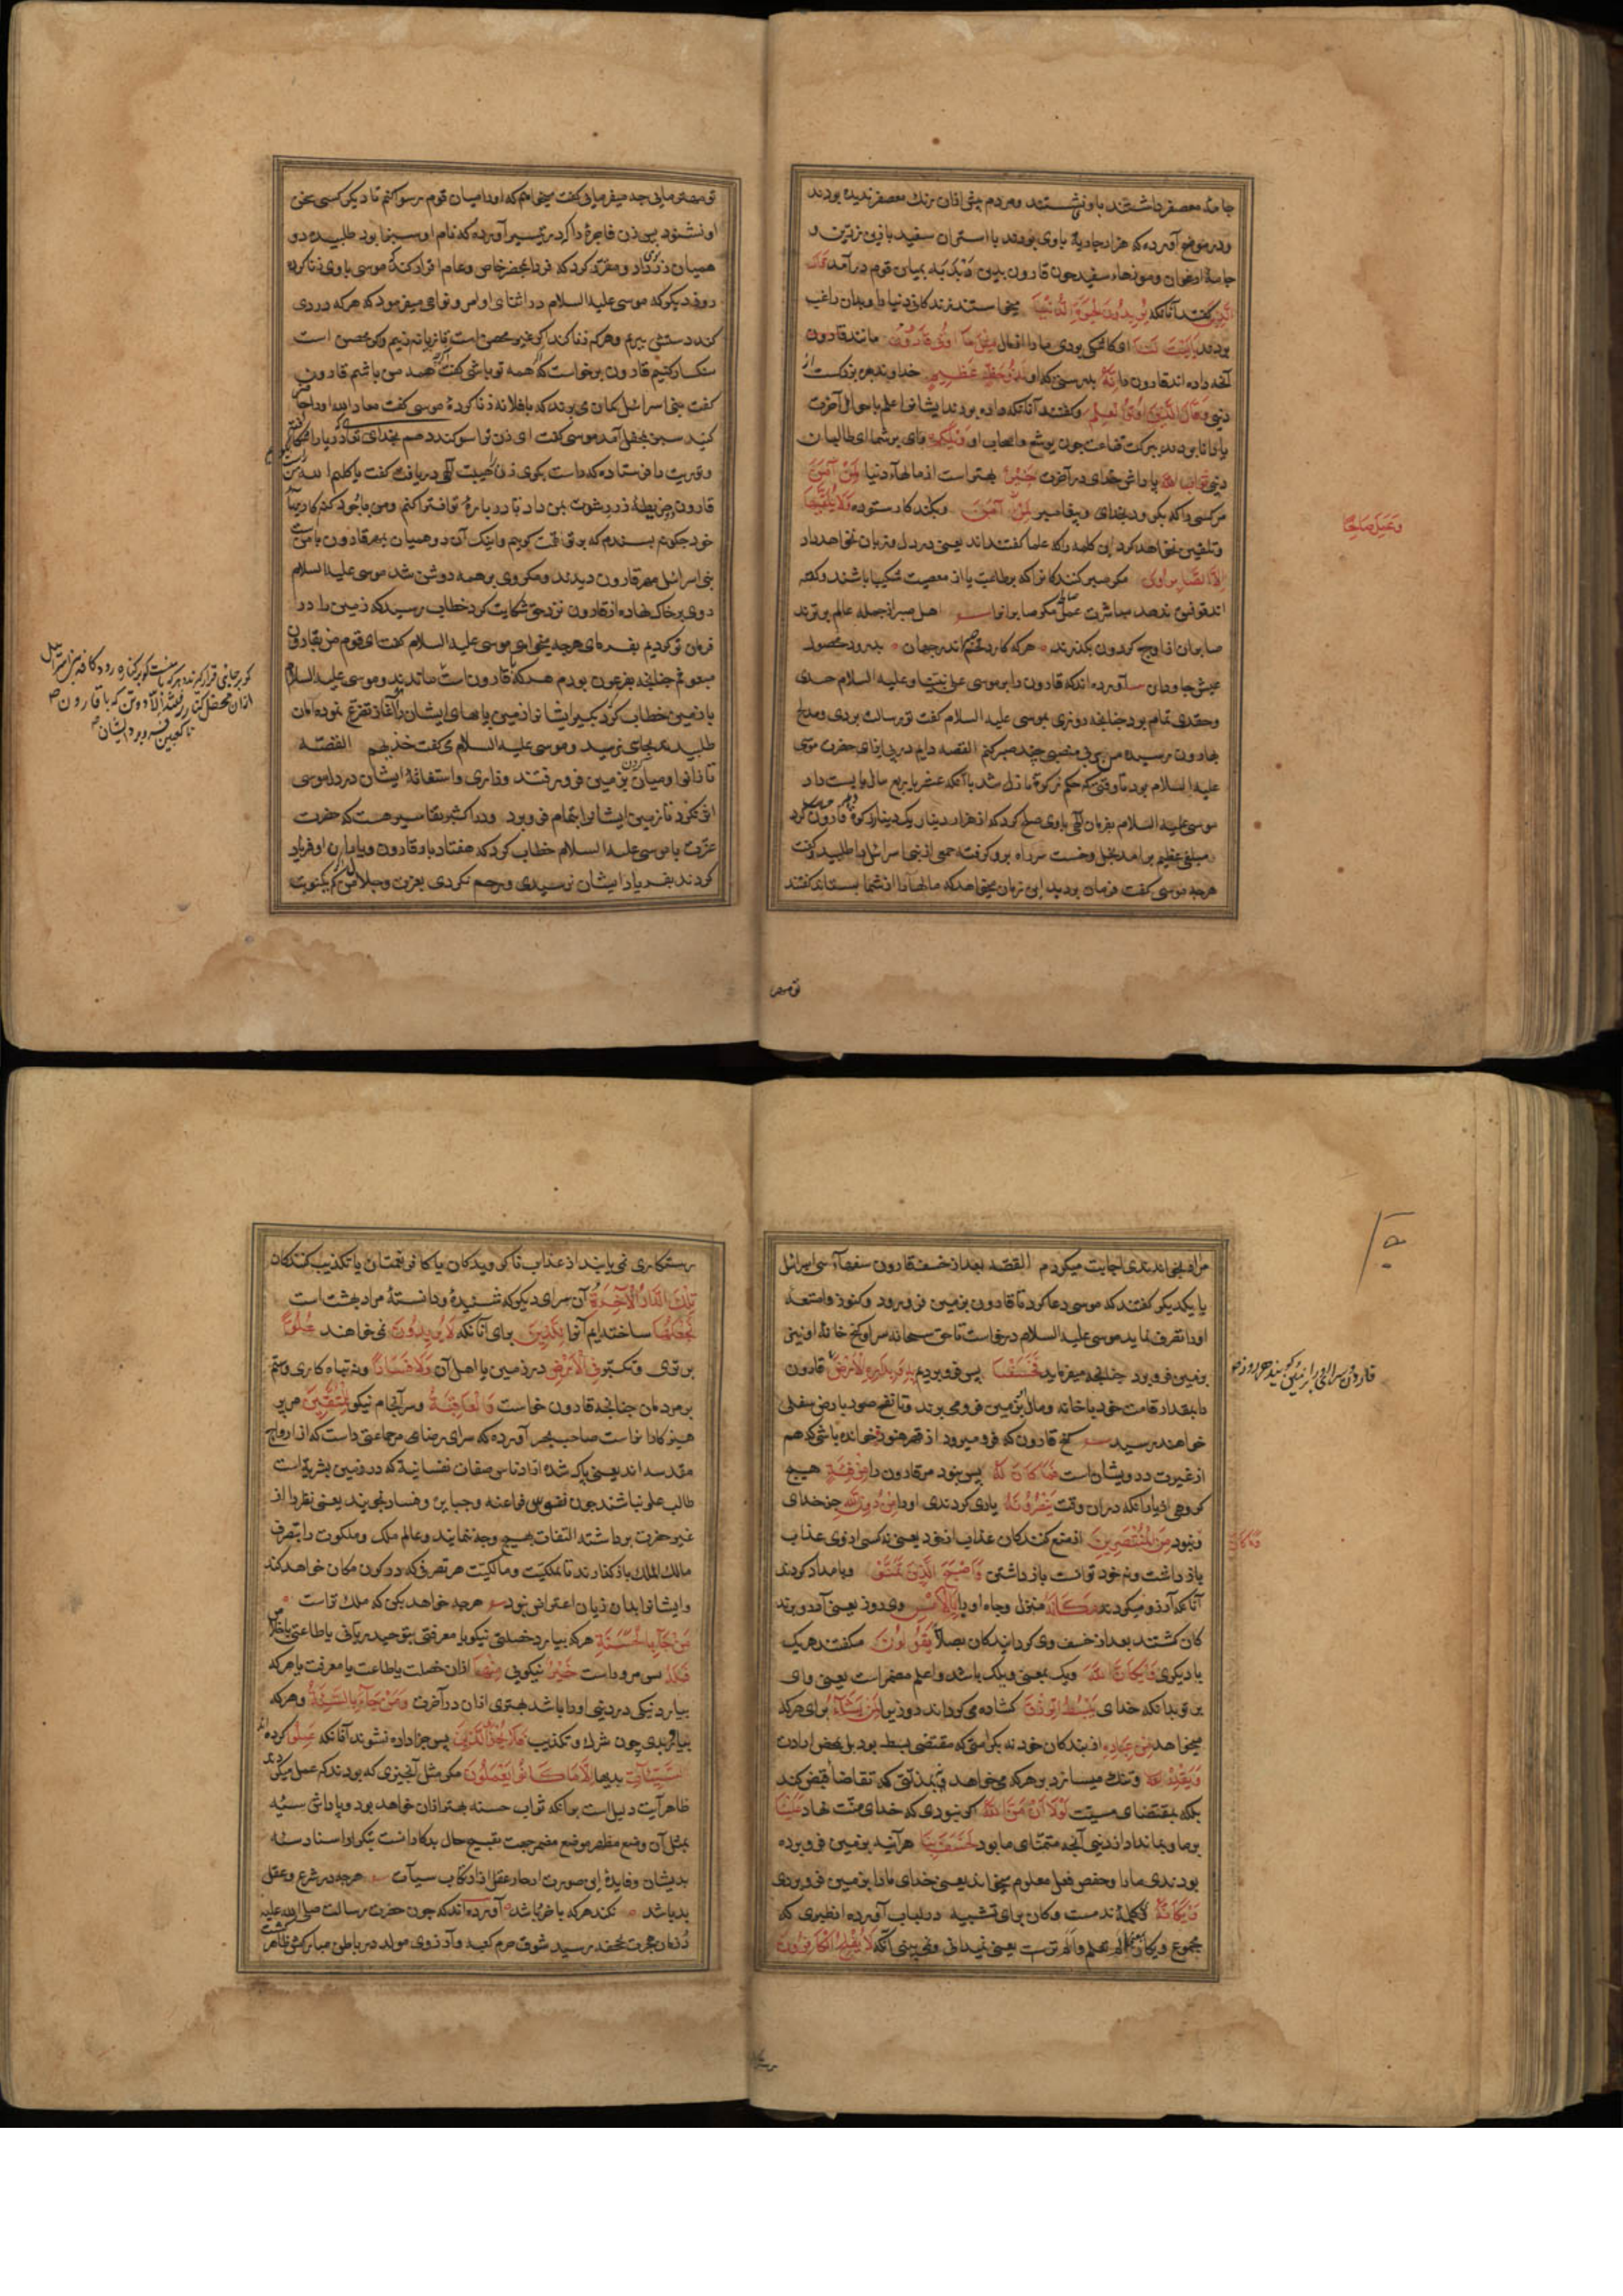 جامهٔ معصفر داشتند باو نشستند ومردم پیش ازان رنك معصفر ندیده بودند
ودر موضح آورده که هزار جاریهٔ باوی بودند با استران سفید با زین زرین و
جامهٔ ارغوان وموزهاء سفید جون قارون بدین دبدبه بمیان قوم درآمد قال
الذین کفتند آنانکه یریدون الحیوة الدنیا میخواستند زندکانی دنیا را وبدان راغب
بودند یالیت لنا ای کاشکی بودی ما را از مال مثل ما اوتی قارون مانند قارون
آنجه داده اند قارون را انه بدرستی که او لذو حظ عظیم خداوند بهرهٔ بزرکست از
دنیی وقال الذین اوتوا العلم وکفتند آنانکه داده بودند ایشانرا علم باحوال آخرت
یا دانا بودند ببرکت قناعت جون یوشع واصحاب او ویلکم وای بر شما ای طالبان
دنیی ثواب الله پاداش خدای در آخرت خیر بهتر است از مالهاء دنیا لمن آمن
مر کسی را که بکرود بخدای وپیغامبر وبکند کار ستوده ولا یلقیها
وتلقین نخواهد کرد این کلمه را که علما کفته اند یعنی در دل وزبان نخواهد داد
الا الصابرون مکر صبر کنندکانرا که بر طاعت یا از معصیت شکیبا باشند وکفته
اند توفیق ندهد مباشرت عمل صالح مکر صابرانرا اهل صبر از جمله عالم برترند
صابران از اوج کردون بکذرند هرکه کارد تخم صبر اندر جهان بدرود محصول
عیش جاودان آورده اند که قارون را بر موسی علی نبینا وعلیه السلام حسدی
وحقدی تمام بود جنانجه روزی بموسی علیه السلام کفت تو رسالت بردی ومذبح
بهارون رسید من بی منصبی جند صبر کنم القصه دایم در پی ایذای حضرت موسی
علیه السلام بود تا وقتی که حکم زکوة نازل شد با آنکه عشر یا ربع مال بایست داد
موسی علیه السلام بفرمان الهی باوی صلح کرد که از هزار دینار یک دینار زکوة قارون حساب کرد
مبلغی عظیم برآمد بخل وخست سر راه برو کرفته جمعی از بنی اسرائیل را طلبید وکفت
هرجه موسی کفت فرمان بردید این زمان میخواهد که مالها را از شما بستاند کفتند
وعمل صالحا
تو مهتر مایی جه میفرمایی کفت میخواهم که او را میان قوم رسوا کنم تا دیکر کسی سخن
او نشنود پس زن فاجرهٔ را که در تیسیر آورده که نام او سبنا بود طلبیده دو
همیان زر بوی داد ومقرر کرد که فردا بمحضر خاص وعام اقرار کند که موسی باوی زنا کرده
روز دیکر که موسی علیه السلام در اثنای اوامر ونواهی میفرمود که هرکه دزدی
کند دستش ببریم وهرکه زنا کند اکر غیر محصن است تازیانه زنیم واکر محصن است
سنکسار کنیم قارون برخواست که اکر همه تو باشی کفت اکرجه همه من باشم قارون
کفت بنی اسرائیل کمان می برند که با فلانه زنا کردهٔ موسی کفت معاذ الله او را حاضر
کنید سبنا بمحفل آمد موسی کفت ای زن ترا سوکند دهم بخدای که دریا را شکافته
وتوریت را فرستاده که راست بکوی زن را هیبت الهی دریافت کفت یا کلیم الله
قارون دو خریطهٔ زر رشوت بمن داد تا در بارهٔ تو افترا کنم ومن با خود کنهکاریها
خود جکونه بسندم که بر تو تهمت کویم واینک آن دو همیان بمهر قارون با من است
بنی اسرائیل مهر قارون دیدند ومکر وی بر همه روشن شد موسی علیه السلام
روی بر خاک نهاده از قارون نزد حق شکایت کرد خطاب رسید که زمین را در
فرمان تو کردیم بفرمای هرجه میخواهی موسی علیه السلام کفت ای قوم من بقارون
مبعوثم جنانجه بفرعون بودم هرکه با قارون است با او ماندند وموسی علیه السلام
با زمین خطاب کرد بکیر ایشانرا زمین پاهای ایشان را آغاز تفزع نموده امان
طلبیدند بجای نرسید وموسی علیه السلام می کفت خذیهم القصه
تا زانو ومیان وکردن بزمین فرو رفتند وزاری واستغاثهٔ ایشان در دل موسی
اثر نکرد تا زمین ایشانرا بتمام فرو برد ودر اکثر تفاسیر هست که حضرت
عزت با موسی علیه السلام خطاب کرد که هفتاد بار قارون ویاران او فریاد
کردند بفریاد ایشان نرسیدی ورحم نکردی بعزت وجلال من که اکر یکنوبت
کو بر جای قرار کیرند هرکه با منست کو بر کناره رود کافهٔ بنی اسرائیل
ازان محفل کناره کرفتند الا دو تن که با قارون
تو مهتر
مرا بخواندندی اجابت میکردم القصه بعد از خسف قارون سفهاء بنی اسرائیل
با یکدیکر کفتند که موسی دعا کرد تا قارون بزمین فرو رود وکنوز وامتعه
او را تصرف نماید موسی علیه السلام درخواست تا حق سبحانه سرای وکنج خانهٔ او نیز
بزمین فرو برد جنانجه میفرماید فخسفنا پس فرو بردیم به وبداره الارض قارون
را بمقدار قامت خود با خانه ومال بزمین فرو می برند وتا نفخ صور بارض سفلی
خواهند رسید کنج قارون که فرو میرود از قهر هنوز خوانده باشی که هم
از غیرت درویشان است فما کان له پس نبود مر قارون را من فئة هیج
کروهی از یاران که دران وقت ینصرونه یاری کردندی او را من دون الله جز خدای
ونبود من المنتصرین از منع کنندکان عذاب از خود یعنی نه کسی از وی عذاب
باز داشت ونه خود توانست باز داشتن واصبح الذین تمنوا وبامداد کردند
آنانکه آرزو میکردند مکانه منزل وجاه او را بالامس دی روز یعنی آرزو برند
کان کشتند بعد از خسف وی کردانیدکان بصلاح یقولون میکفتند هریک
با دیکری ویکان الله ویک بمعنی ویلک باشد واعلم مضمر است یعنی وای
بر تو بدانکه خدای یبسط الرزق کشاده می کرداند روزی را لمن یشاء برای هرکه
میخواهد من عباده از بندکان خود نه بکرامتی که مقتضی بسط بود بل بمحض ارادت
ویقدر وتنک میسازد بر هرکه می خواهد نه بمذلتی که تقاضاء قبض کند
بلکه بمقتضای مشیت لولا ان من الله اکر نبودی که خدای منت نهاد علینا
بر ما وبما نداد از دنیی آنجه متمنای ما بود لخسف بنا هر آینه بزمین فرو برده
بودندی ما را وحفص فعل معلوم میخواند یعنی خدای ما را بزمین فرو بردی
ویکانه وی کلمهٔ ندمست وکان برای تشبیه در لباب آورده از نظیری که
مجموع ویکان بمعنی الم تعلم والم تر است یعنی نمیدانی ونمی بینی آنکه لا یفلح الکافرون
قارون
وما کان
رستکاری نمی یابند از عذاب ناکرویدکان یا کافر نعمتان یا تکذیب کنندکان
تلك الدار الآخرة آن سرای دیکر که شنیدهٔ ودانستهٔ مراد بهشت است
نجعلها ساخته ایم آنرا للذین برای آنانکه لا یریدون نمی خواهند علوا
برتری وتکبر فی الارض در زمین با اهل آن ولا فسادا ونه تباه کاری وستم
بر مردمان جنانجه قارون خواست والعاقبة وسرانجام نیکو للمتقین مر پر
هیزکارانراست صاحب بحر آورده که سرای رضای مر جماعتی راست که از ارواح
مقدسه اند یعنی پاک شده از ادناس صفات نفسانیه که در زمین بشریت
طالب علو نباشند جون نفوس فراعنه وجبابره وفساد نجویند یعنی نظر را از
غیر حضرت برداشته التفات بهیج وجه ننمایند وعالم ملک وملکوت را بتصرف
مالک الملک باز کذارند تا بملکیت ومالکیت هر تصرفی که در کون ومکان خواهد کند
وایشانرا بدان زبان اعتراض نبود هرجه خواهد بکن که ملک تراست
من جاء بالحسنة هرکه بیارد خصلتی نیکو یا معرفتی بتوحید ربانی یا طاعتی باخلاص
فله پس مر وراست خیر نیکوئی منها ازان خصلت یا طاعت یا معرفت یا هرکه
بیارد نیکی در دنیی او را باشد بهتری ازان در آخرت ومن جاء بالسیئة وهرکه
بیارد بدی جون شرك وتکذیب فلا یجزی الذین پس جزا داده نشوند آنانکه عملوا کرده اند
السیئات بدیها الا ما کانوا یعملون مکر مثل آنجیزی که بودند که عمل میکردند
ظاهر آیت دلیل است برآنکه ثواب حسنه بهتر ازان خواهد بود وپاداش سیئه
بمثل آن ووضع مظهر موضع مضمر جهت تقبیح حال بدکارانست بتکرار اسناد سیئه
بدیشان وفایدهٔ این صورت انزجار عقل از ارتکاب سیآت هرجه در شرع وعقل
بد باشد نکند هرکه با خرد باشد آورده اند که جون حضرت رسالت صلی الله علیه
در زمان هجرت بجحفه رسید شوق حرم کعبه وآرزوی مولد در باطن مبارکش ظاهر کشت